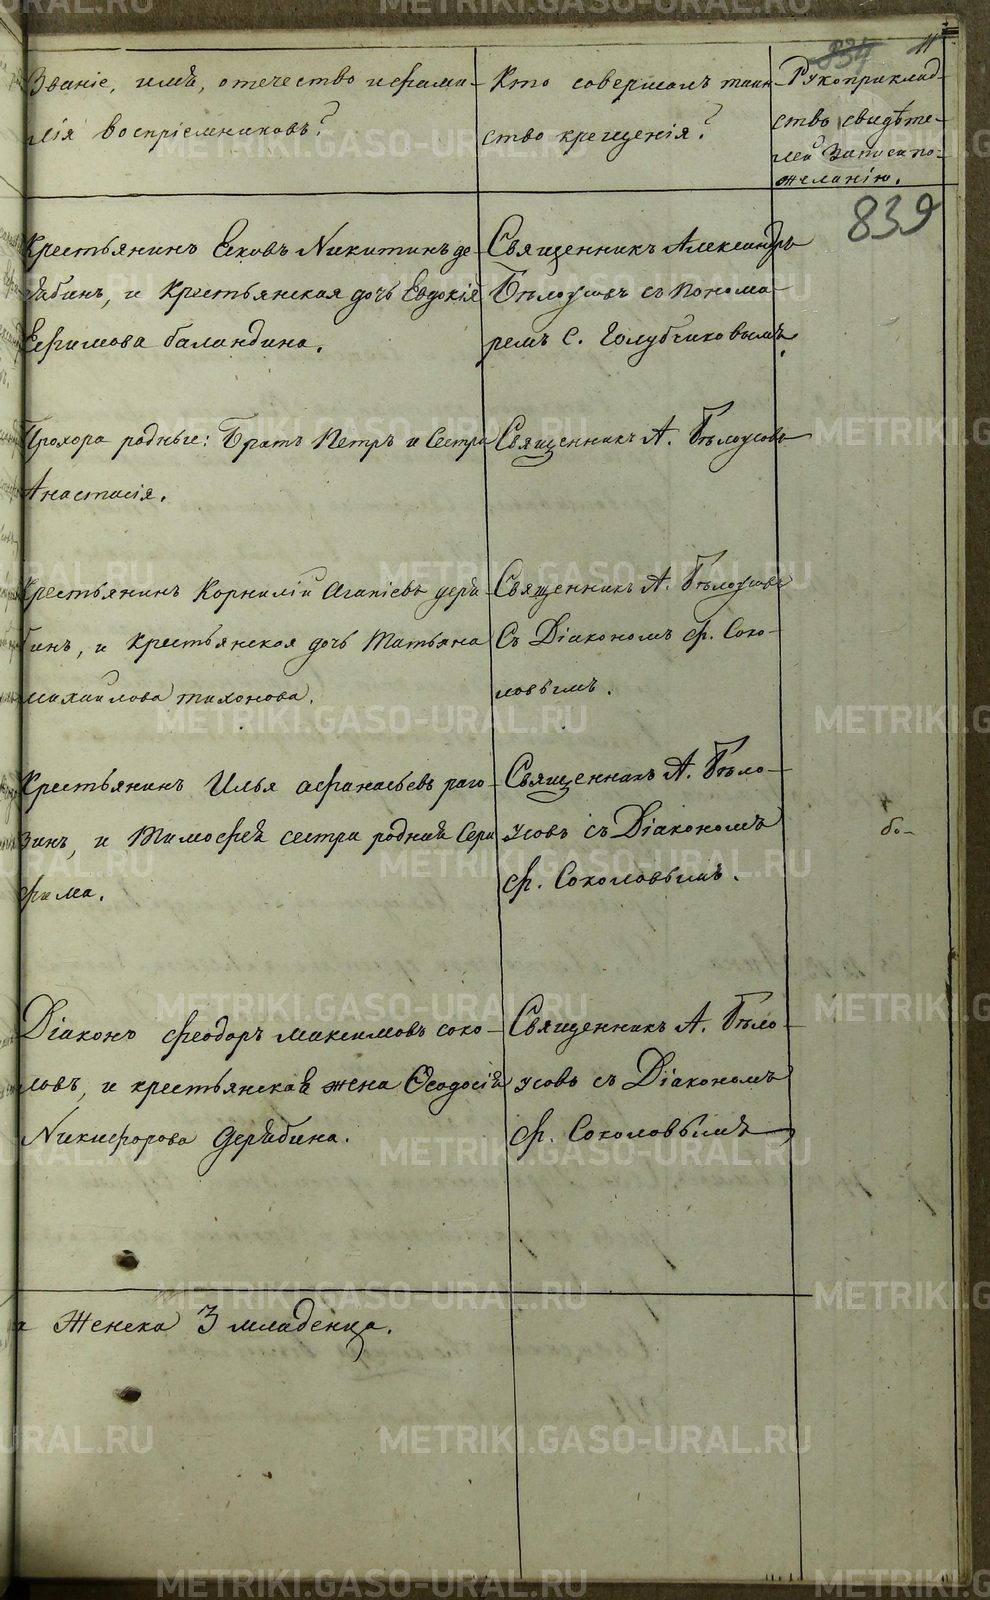 834 11
Званіе, имѣ, отечество и фами-
лія воспріемниковъ?
Кто совершалъ таин-
ство крещенія?
Рукоприклад-
ство свидѣте-
лей записи по-
желанію.
839
Крестьянинъ Ековъ Никитинъ де-
рябинъ, и Крестьянская дочь Евдокія
Ефимова баландина.
Священникъ Александръ
Бѣлоусовъ съ понома-
ремъ С. Голубчиковымъ.
Прохора родные: Братъ Петръ и Сестра
Анастасія.
Священникъ А. Бѣлоусовъ
Крестьянинъ Корнилій Агапіевъ деря-
бинъ, и Крестьянская дочь Татьяна
михайлова тихонова.
Священникъ А. Бѣлоусовъ
Съ Діакономъ Ф. Соко-
ловымъ.
Крестьянинъ Илья афанасьевъ раго-
зинъ, и Тимофей сестра родная Сера
фима.
Священникъ А. Бѣло-
усовъ съ Діакономъ
Ф. Соколовымъ.
Діаконъ феодоръ максимовъ соко-
ловъ, и крестьянская жена Феодосія
Никифорова дерябина.
Священникъ А. Бѣло-
усовъ съ Діакономъ
Ф. Соколовымъ
Женска 3 младенца.
METRIKI.GASO-URAL.RU